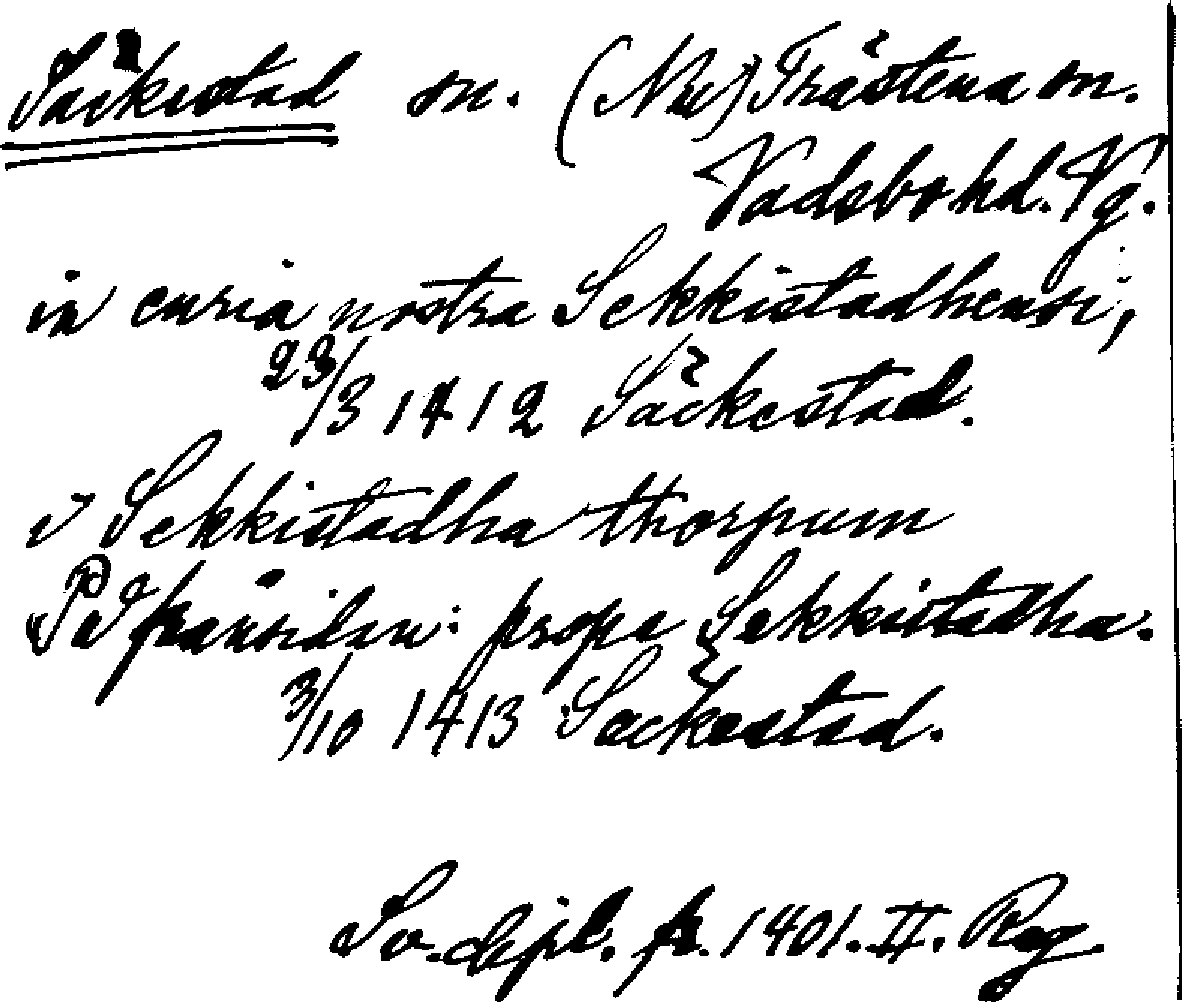 Säckestad sn. (Nu) Trästena sn.
Vadsbo hd. Vg.
in curia nostra Sekkistadhensi,
23/3 1412 Säckestad.
i Sekkistadha thorpum
På frånsidan: prope Sekkistadha.
3/10 1413 Säckestad.
Sv. dipl. fr. 1401. II. Reg.